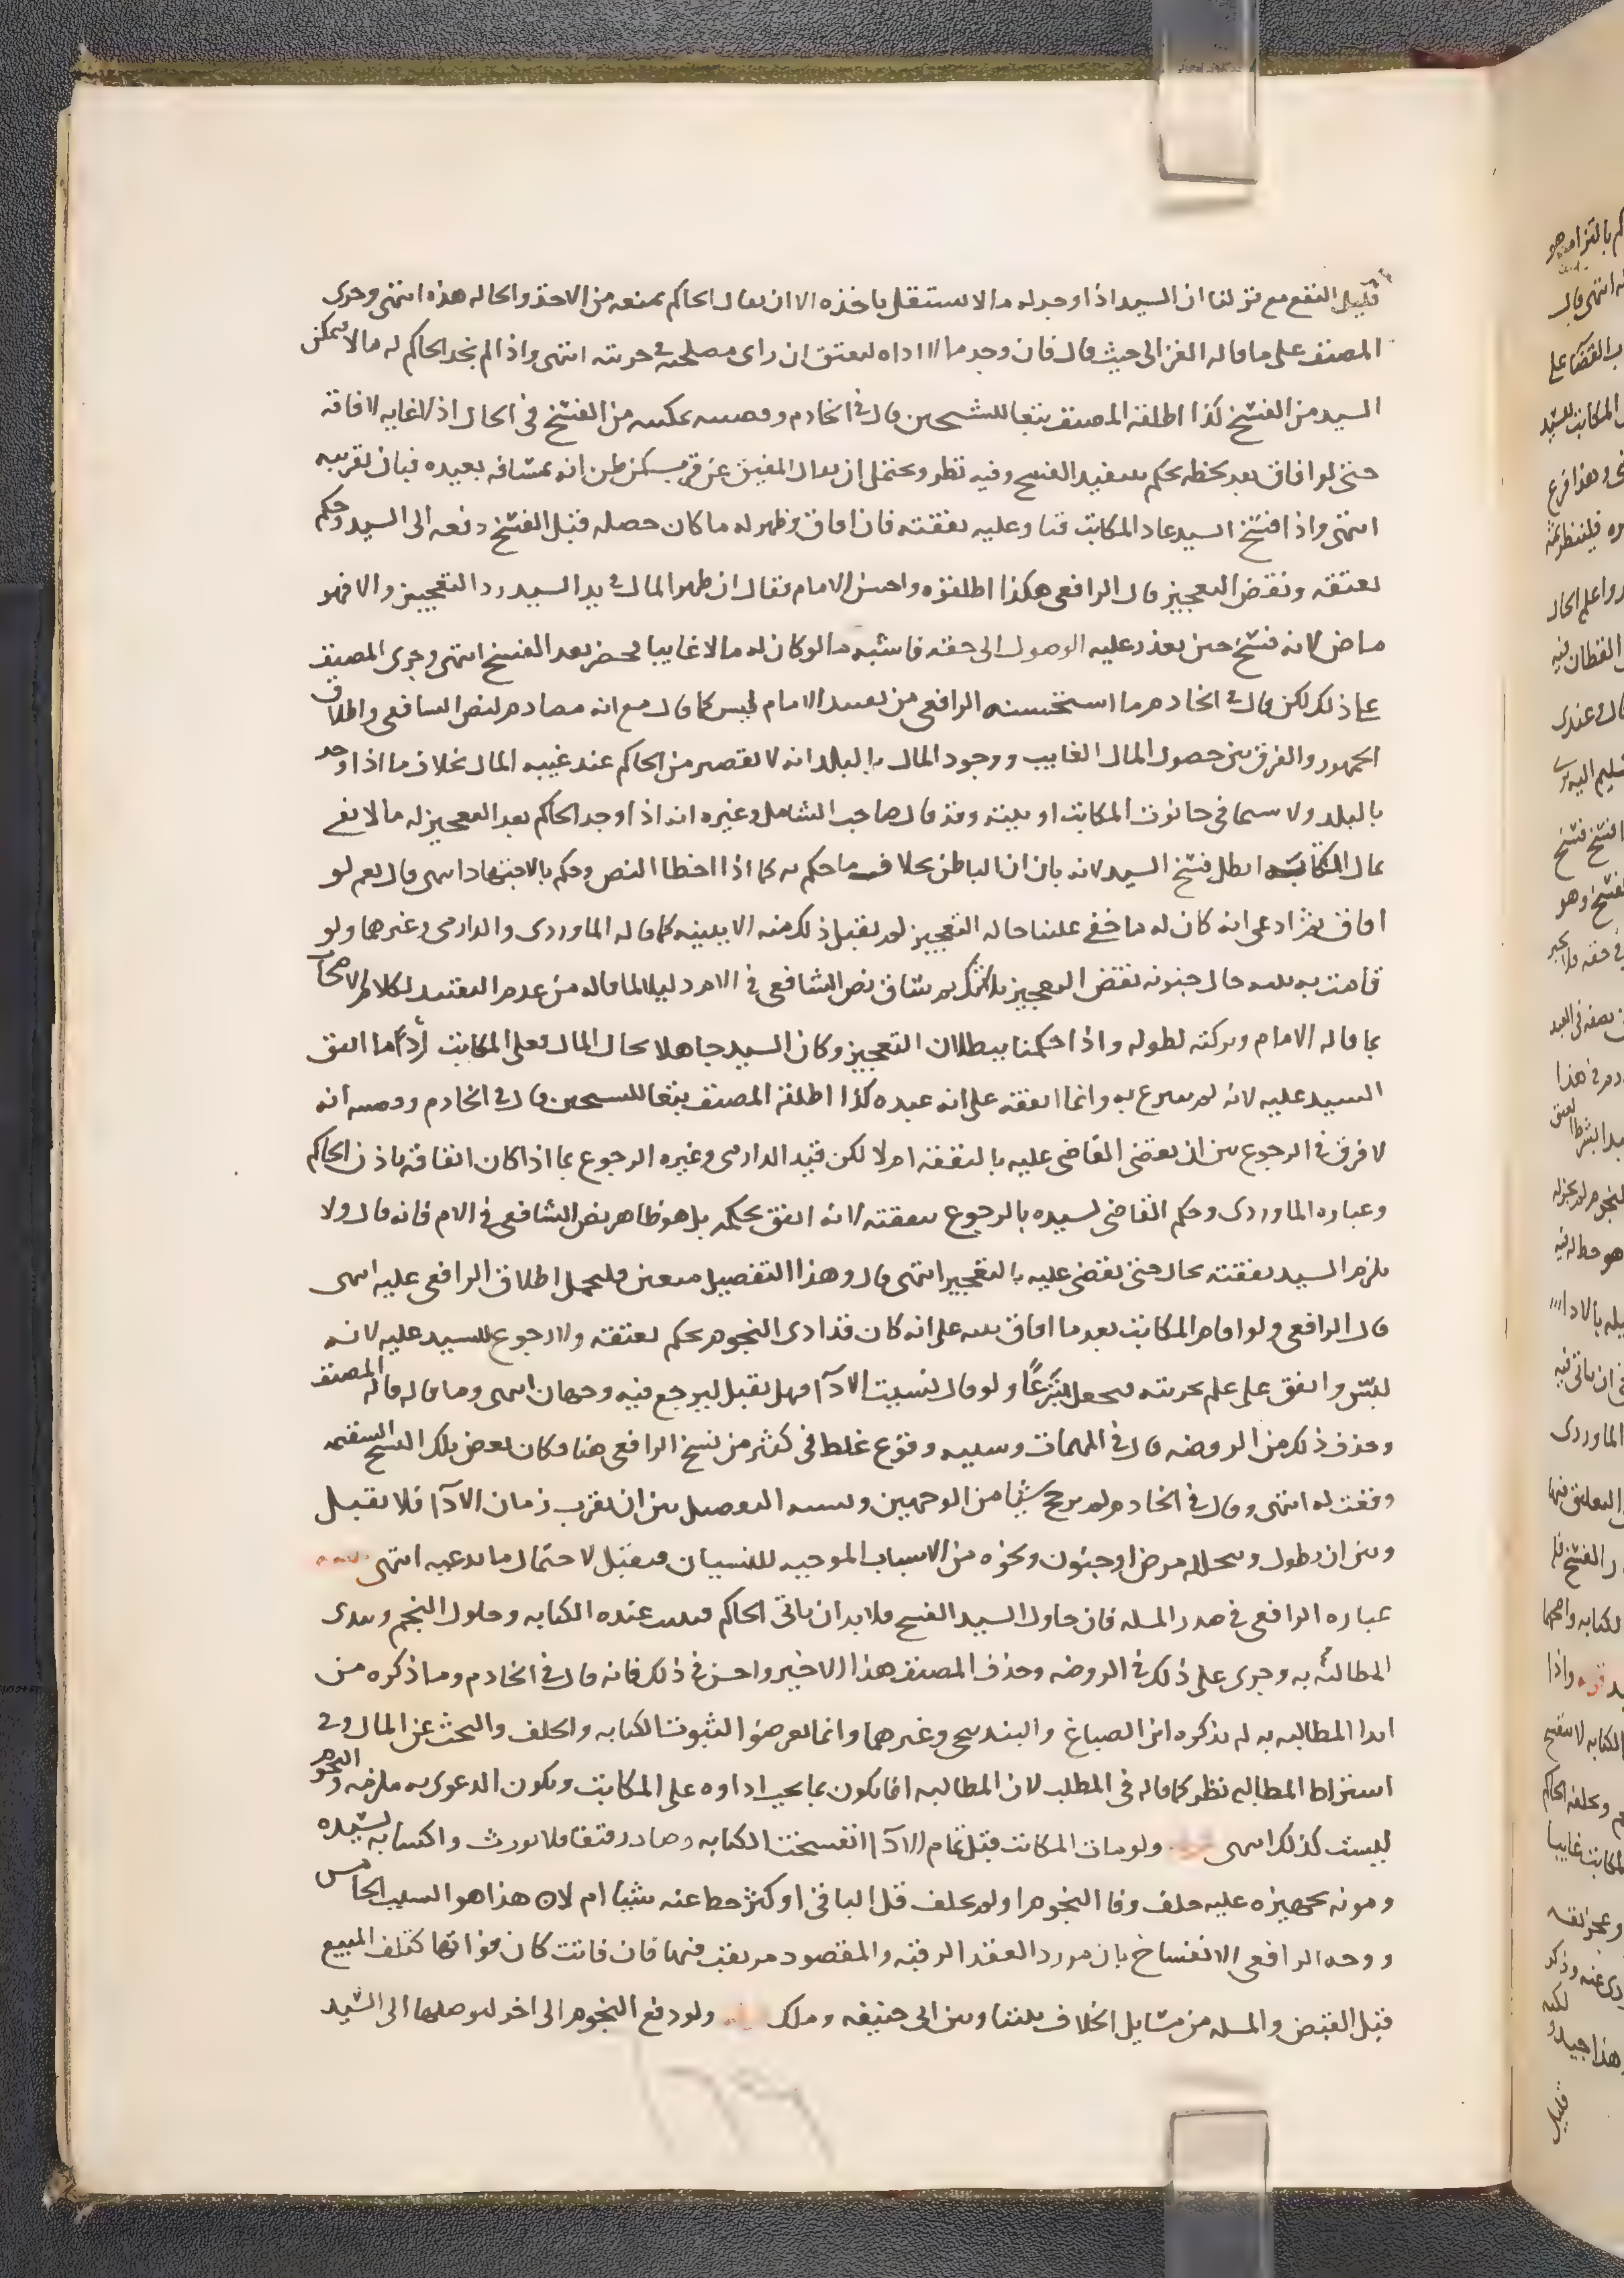 قليل النفع مع قولنا ان السيد اذا وجد له مالا استقل باخذه الا ان يقال الحاكم يمنعه من الاخذ والحاله هذه انتهى وجرى
المصنف على ما قاله الغزالي حيث قال فان وجد مالا اداه ليعتق ان راى مصلحته في حريته انتهى واذا لم يجد الحاكم له مالا يمكن
السيد من الفسخ كذا اطلقه المصنف تبعا للشيخين قال في الخادم وقضيته تمكينه من الفسخ في الحال اذ لا غايه لافاقته
حتى لو افاق بعد لحظه يحكم بتنفيذ الفسخ وفيه نظر ويحتمل ان يقال المفيق عن قرب كمن ظن انه بمسافه بعيده فبان بقريبه
انتهى واذا فسخ السيد عاد المكاتب قنا وعليه نفقته فان افاق وظهر له ما كان حصله قبل الفسخ دفعه الى السيد وحكم
بعتقه ونقض التعجيز قال الرافعي هكذا اطلقوه واحسن الامام فقال ان ظهر المال في يد السيد رد التعجيز والا فهو
ماض لانه فسخ حين تعذر عليه الوصول الى حقه فاشبه ما لو كان له مالا غايبا فحضر بعد الفسخ انتهى وجرى المصنف
على ذلك لكن قال في الخادم وما استحسنه الرافعي من تقييد الامام ليس كما قال مع انه مصادم لنص الشافعي واطلاق
الجمهور والفرق بين حصول المال الغايب ووجود المال بالبلد انه لا تقصير من الحاكم عند غيبه المال بخلاف ما اذا وجد
بالبلد ولا سيما في حانوت المكاتب او بيته وقد قال صاحب الشامل وغيره انه اذا وجد الحاكم بعد التعجيز له مالا يفي
بمال الكتابه ابطل فسخ السيد لانه بان ان الباطن بخلاف ما حكم به كما اذا اخطا النص وحكم بالاجتهاد انتهى قال نعم لو
افاق ثم ادعى انه كان له ما خفي علينا حاله التعجيز لم يقبل ذلك منه الا ببينه كما قاله الماوردي والدارمي وغيرهما ولو
قامت به بينه حال جنونه نقض التعجيز ثم ساق نص الشافعي في الام دليلا لما قاله من عدم التقييد لكلام الاصحاب
بما قاله الامام وتركته لطوله واذا حكمنا ببطلان التعجيز وكان السيد جاهلا بحال المال فعلى المكاتب رد ما انفق
السيد عليه لانه لم يتبرع به وانما انفقه على انه عبده كذا اطلقه المصنف تبعا للشيخين قال في الخادم وقضيته انه
لا فرق في الرجوع بين ان يقضى القاضي عليه بالنفقه ام لا لكن قيد الدارمي وغيره الرجوع بما اذا كان انفاقه باذن الحاكم
وعباره الماوردي وحكم القاضي لسيده بالرجوع بنفقته لانه انفق بحكمه بل هو ظاهر نص الشافعي في الام فانه قال ولا
يلزم السيد نفقته بحال حتى يقضى عليه بالتعجيز انتهى قال وهذا التفصيل متعين وليحمل اطلاق الرافعي عليه انتهى
قال الرافعي ولو اقام المكاتب بعد ما افاق بينه على انه كان قد ادى النجوم حكم بعتقه ولا رجوع للسيد عليه لانه
لبس وانفق على علم بحريته فيجعل متبرعا ولو قال نسيت الادآ فهل يقبل ليرجع فيه وجهان انتهى وما قاله قاله المصنف
وحذف ذلك من الروضه قال في المهمات وسببه وقوع غلط في كثير من نسخ الرافعي هنا وكان بعض تلك النسخ السقيمه
وقعت له انتهى وقال في الخادم ولم يرجح شيئا من الوجهين ويشبه التفصيل بين ان يقرب زمان الادآ فلا يقبل
وبين ان يطول ويتخلله مرض او جنون ونحوه من الاسباب الموجبه للنسيان فيقبل لاحتمال ما يدعيه انتهى
عباره الرافعي في صدر المسله فان حاول السيد الفسخ فلا بد ان ياتي الحاكم فيثبت عنده الكتابه وحلول النجم ويبدى
المطالبة به وجرى على ذلك في الروضه وحذف المصنف هذا الاخير واحسن في ذلك فانه قال في الخادم وما ذكره من
ابدا المطالبه به لم يذكره ابن الصباغ والبندنيجي وغيرهما وانما تعرضوا لثبوت الكتابه والحلف والبحث عن المال وفي
اشتراط المطالبه نظر كما قاله في المطلب لان المطالبه انما تكون بما يجب اداوه على المكاتب وتكون الدعوى به ملزمه والنجوم
ليست كذلك انتهى ولو مات المكاتب قبل تمام الادآ انفسخت الكتابه وصار رقيقا فلا يورث واكسابه لسيده
ومونه تجهيزه عليه خلف وفا النجوم اولم يخلف قل الباقي او كثر حط عنه شيئا ام لا ن هذا هو السبب الخامس
ووجه الرافعي الانفساخ بان مورد العقد الرقبه والمقصود مرتقب فيها فان فاتت كان فواتها كتلف المبيع
قبل القبض والمسله من مسايل الخلاف بيننا وبين ابي حنيفه وملك ولو دفع النجوم الى اخر ليوصلها الى السيد